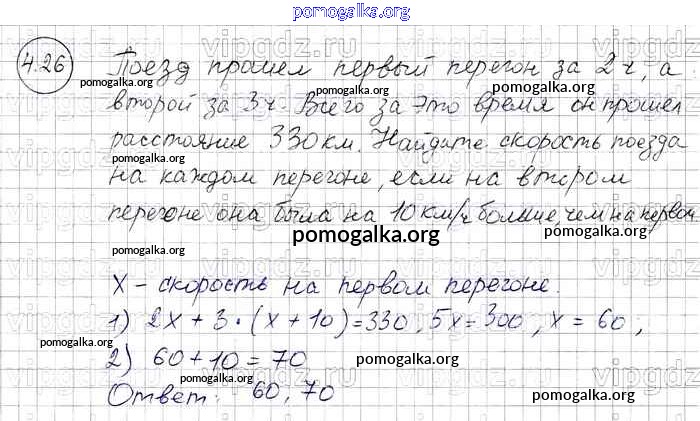 pomogalka.org
vipgdz.ru
4.26 Поезд прошел первый перегон за 2 ч, а
pomogalka.org
второй за 3 ч. Всего за это время он прошел
pomogalka.org
расстояние 330 км. Найдите скорость поезда
pomogalka.org
на каждом перегоне, если на втором
перегоне она была на 10 км/ч больше чем на первом
pomogalka.org
pomogalka.org
X - скорость на первом перегоне.
1) 2x + 3 · (x + 10) = 330, 5x = 300, x = 60,
pomogalka.org
2) 60 + 10 = 70
pomogalka.org
pomogalka.org
Ответ: 60, 70